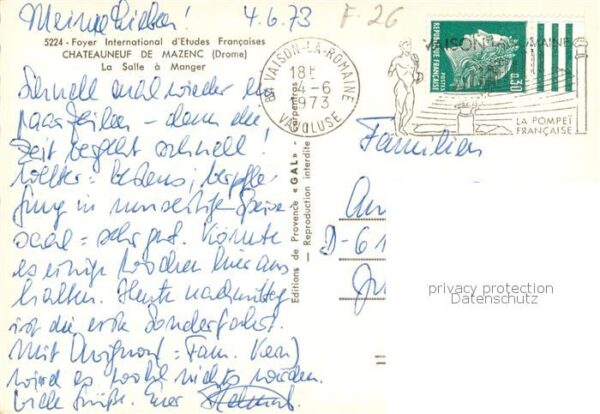 Meine Lieben! 4.6.73 F-26
5224 - Foyer International d'Etudes Françaises
CHATEAUNEUF DE MAZENC (Drome)
La Salle à Manger
Schnell mal wieder ein
paar Zeilen - denn die
Zeit vergeht schnell!
Wetter: bestens; Verpfle-
gung in Speise
saal = sehr gut. Könnte
es einige Wochen hier aus
halten. Heute nachmittag
ist die erste Sonderfahrt.
Mit Avignon (= Fam. Kern)
wird es wohl nichts werden.
Viele Grüße. Euer Helmut
Editions de Provence «GAL» - Carpentras
Reproduction interdite
84 VAISON-LA-ROMAINE
18H
4-6
1973
VAUCLUSE
VAISON-LA-ROMAINE
LA POMPEÏ
FRANÇAISE
REPUBLIQUE FRANÇAISE
POSTES
0,30
Familien
D-61
privacy protection
Datenschutz